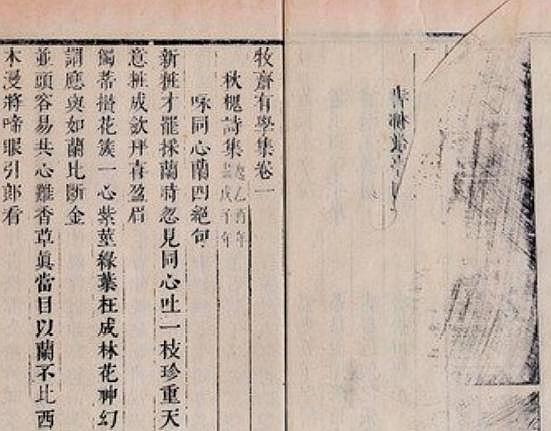 牧齋有學集卷一
秋槐詩集 起乙酉年 盡戊子年
詠同心蘭四絕句
新粧才罷採蘭時忽見同心吐一枝珍重天
意粧成斂拜喜盈眉
獨蒂攢花簇一心紫莖綠葉枉成林花神幻
謂應與如蘭比斷金
並頭容易共心難香草真當目以蘭不比西
木漫將啼眼引郎看